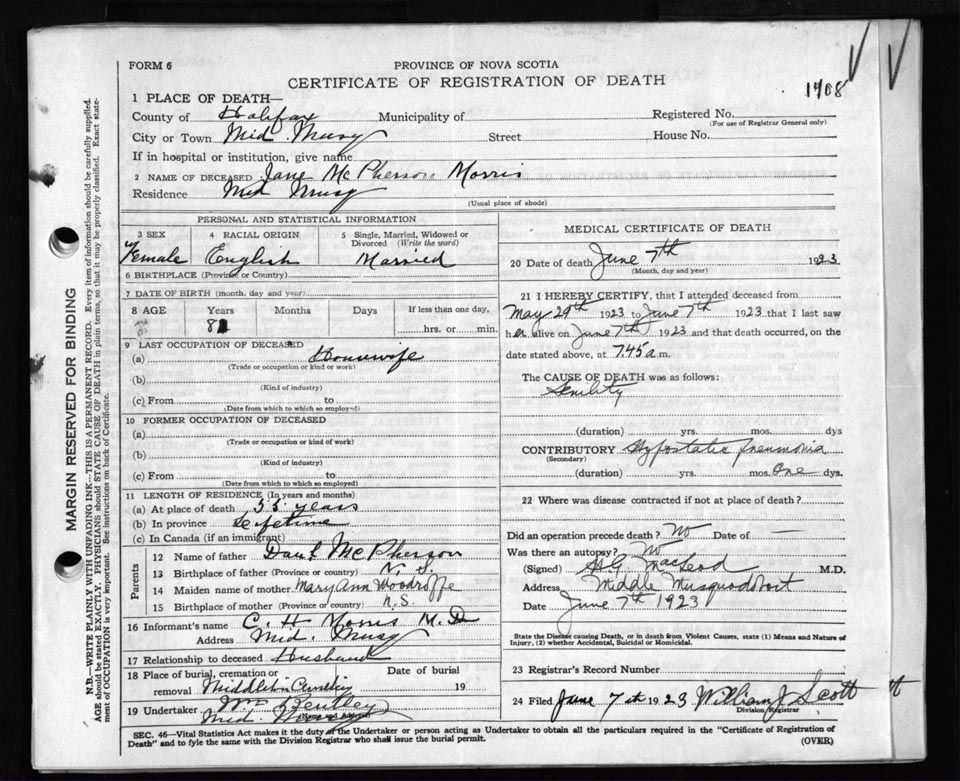 FORM 6
PROVINCE OF NOVA SCOTIA
CERTIFICATE OF REGISTRATION OF DEATH
1908
1 PLACE OF DEATH—
County of Halifax Municipality of Registered No.
(For use of Registrar General only)
City or Town Mid. Musq Street House No.
If in hospital or institution, give name
2 NAME OF DECEASED Jane McPherson Morris
Residence Mid Musq
(Usual place of abode)
PERSONAL AND STATISTICAL INFORMATION
3 SEX 4 RACIAL ORIGIN 5 Single, Married, Widowed or Divorced (Write the word)
Female English Married
6 BIRTHPLACE (Province or Country)
7 DATE OF BIRTH (month, day and year)
8 AGE Years Months Days If less than one day,
hrs. or min.
9 LAST OCCUPATION OF DECEASED
(a) Housewife
(Trade or occupation or kind or work)
(b)
(Kind of industry)
(c) From to
(Date from which to which so employed)
10 FORMER OCCUPATION OF DECEASED
(a)
(Trade or occupation or kind of work)
(b)
(Kind of industry)
(c) From to
(Date from which to which so employed)
11 LENGTH OF RESIDENCE (In years and months)
(a) At place of death 55 years
(b) In province Lifetime
(c) In Canada (if an immigrant)
Parents
12 Name of father Danl McPherson
13 Birthplace of father (Province or country) N. S.
14 Maiden name of mother Mary Ann Woodroffe
15 Birthplace of mother (Province or country) N.S.
16 Informant's name C. H Morris M.D
Address Mid. Musq
17 Relationship to deceased Husband
18 Place of burial, cremation or Date of burial
removal 19
19 Undertaker Wm Bentley
(Name and Address)
MEDICAL CERTIFICATE OF DEATH
20 Date of death June 7th 1923
(Month, day and year)
21 I HEREBY CERTIFY, that I attended deceased from
May 29th 1923 to June 7th 1923 that I last saw
her alive on June 7th 1923 and that death occurred, on the
date stated above, at 7.45 a m.
The CAUSE OF DEATH was as follows:
Senility
(duration) yrs. mos. dys
CONTRIBUTORY Hypostatic pneumonia
(Secondary)
(duration) yrs. mos. One dys.
22 Where was disease contracted if not at place of death?
Did an operation precede death? No Date of —
Was there an autopsy? No
(Signed) MacLeod M.D.
Address Middle Musquodoboit
Date June 7th 1923
State the Disease causing Death, or in death from Violent Causes, state (1) Means and Nature of
Injury, (2) whether Accidental, Suicidal or Homicidal.
23 Registrar's Record Number
24 Filed June 7th 1923 William J Scott
Division Registrar
SEC. 46—Vital Statistics Act makes it the duty of the Undertaker or person acting as Undertaker to obtain all the particulars required in the "Certificate of Registration of
Death" and to fyle the same with the Division Registrar who shall issue the burial permit.
(OVER)
MARGIN RESERVED FOR BINDING
N.B.—WRITE PLAINLY WITH UNFADING INK—THIS IS A PERMANENT RECORD. Every item of information should be carefully supplied.
AGE should be stated EXACTLY. PHYSICIANS should STATE CAUSE OF DEATH in plain terms, so that it may be properly classified. Exact state-
ment of OCCUPATION is very important. See instructions on back of Certificate.